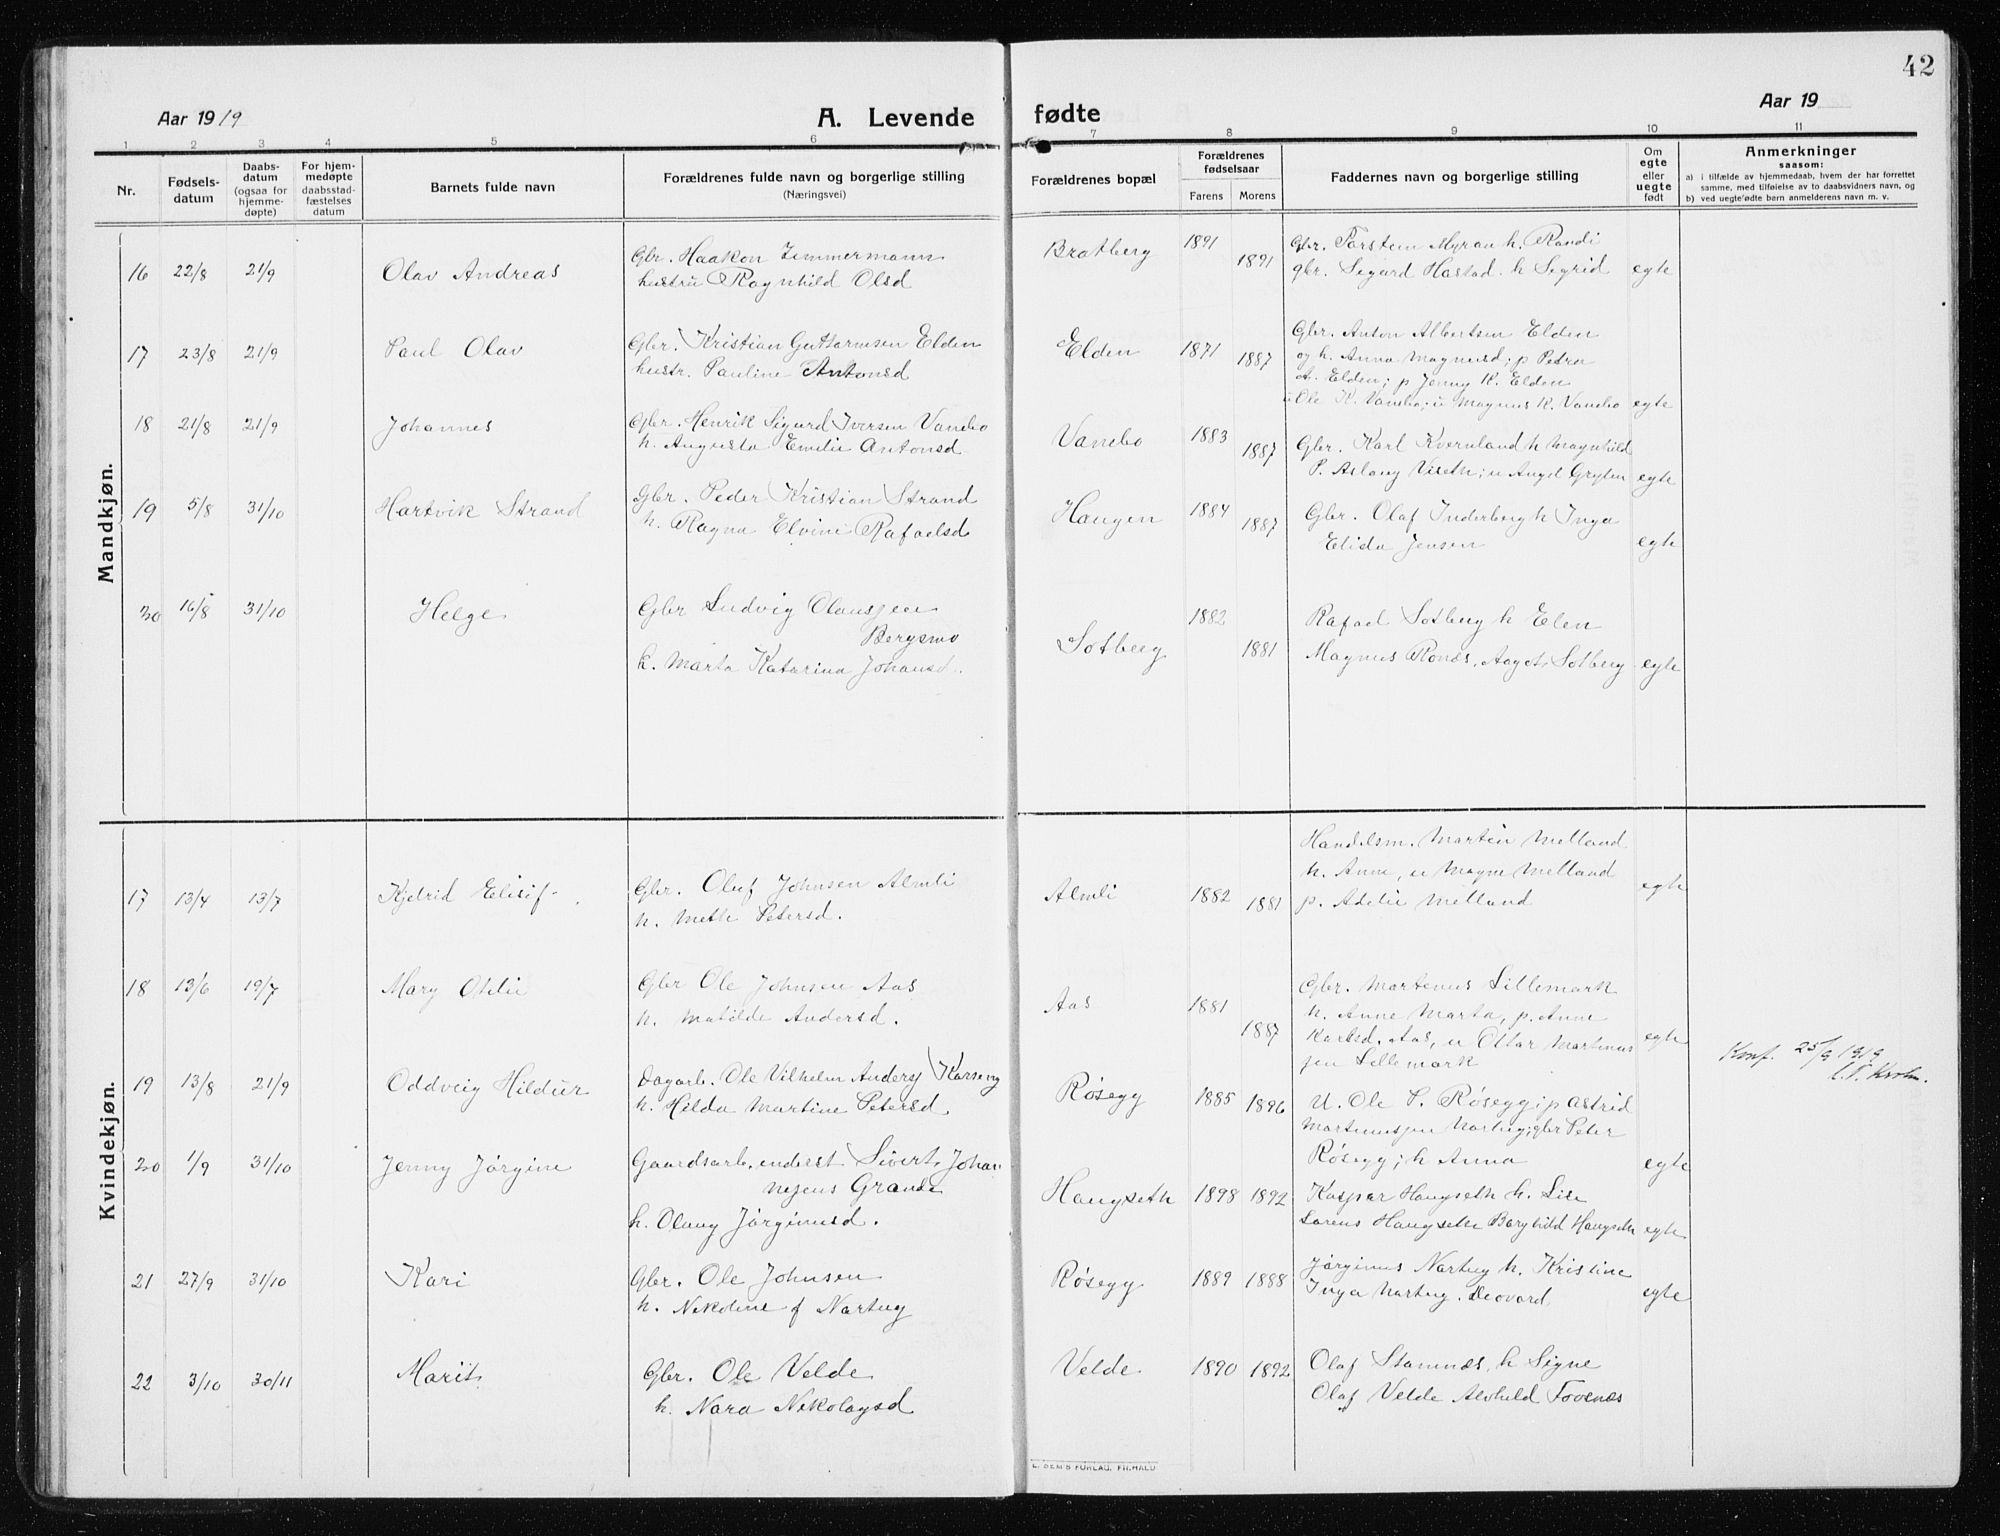 42
Aar 1919
A. Levende fødte
Aar 19
1 2 3 4 5 6 7 8 9 10 11
Nr.
Fødsels-
datum
Daabs-
datum
(ogsaa for
hjemme-
døpte)
For hjem-
medøpte
daabsstad-
fæstelses
datum
Barnets fulde navn
Forældrenes fulde navn og borgerlige stilling
(Næringsvei)
Forældrenes bopæl
Forældrenes
fødselsaar
Farens Morens
Faddernes navn og borgerlige stilling
Om
egte
eller
uegte
født
Anmerkninger
saasom:
a) i tilfælde av hjemmedaab, hvem der har forrettet
samme, med tilføielse av to daabsvidners navn, og
b) ved uegte fødte barn anmelderens navn m. v.
Mandkjøn.
16 22/8 21/9 Olav Andreas
Gbr. Haakon Zimmermann
hustru Ragnhild Olsd
Bratberg 1891 1891
Gbr. Torstein Myran h. Randi
gbr. Sigurd Hastad. h Sigrid egte
17 23/8 21/9 Paul Olav
Gbr. Kristian Guttormsen Elden
hustr. Pauline Antonsd
Elden 1871 1887
Gbr. Anton Albertsen Elden
og h. Anna Magnusd; p Petra
A. Elden; p Jenny K. Elden
u Ole K. Vanebo; u Magnus K. Vanebo egte
18 21/8 21/9 Johannes
Gbr. Henrik Sigurd Iversen Vanebo
h. Augusta Emelie Antonsd
Vanebo 1883 1887
Gbr. Karl Kvernland h Magnhild
P. Aslaug Viseth; u Augst Gryten egte
19 5/8 31/10 Hartvik Strand
Gbr. Peder Kristian Strand
h. Ragna Elvine Rafaelsd
Haugen 1884 1887
Gbr. Olaf Inderberg h Inga
Elida Jensen egte
20 16/8 31/10 Helge
Gbr Ludvig Olaussen
Bergsmo
h. Marta Katarina Johansd.
Solberg 1882 1881
Rafael Solberg h Elen
Magnus Rones, Aagot Solberg egte
Kvindekjøn.
17 13/4 13/7 Kjelrid Elisif
Gbr. Oluf Johnsen Almli
h. Meth Petersd.
Almli 1882 1881
Handelsm. Martin Melland
h. Anne, u Magne Melland
p. Adelie Melland egte
18 13/6 19/7 Mary Otilie
Gbr Ole Johnsen Aas
h. Matilde Andersd.
Aas 1881 1887
Gbr. Martenus Lillemark
h. Anne Marta, p. Anne
Karlsd. Aas, u Ottar Martinus
sen Lillemark egte
19 13/8 21/9 Oddveig Hildur
Dagarb. Ole Vilhelm Anders Karseng
h. Hilda Martine Petersd
Røsegg 1885 1896
U. Ole P. Røsegg; p Astrid
Martinussen Nortug; gbr Peter
Røsegg; h Anna egte
Konf. 25/9 1919
20 1/9 31/10 Jenny Jørgine
Gaardsarb. enderst Sivert Johan
nesens Grande
h. Olaug Jørginusd.
Haugseth 1898 1892
Kaspar Haugseth h. Lise
Lorens Haugseth Borghild Haugseth egte
21 27/9 31/10 Kari
Gbr. Ole Johnsen
h. Nikoline f Nortug
Røsegg 1889 1888
Jørginus Nortug h. Kristine
Inga Nortug. Leovard egte
22 3/10 30/11 Marit
Gbr. Ole Velde
h. Nora Nikolaysd
Velde 1890 1892
Olaf Stamnæs, h Signe
Olaf Velde Alvhild Fossnæs